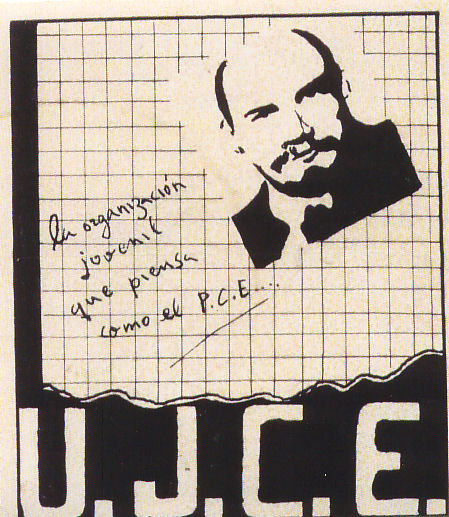 la organización
juvenil
que piensa
como el P.C.E.....
U.J.C.E.